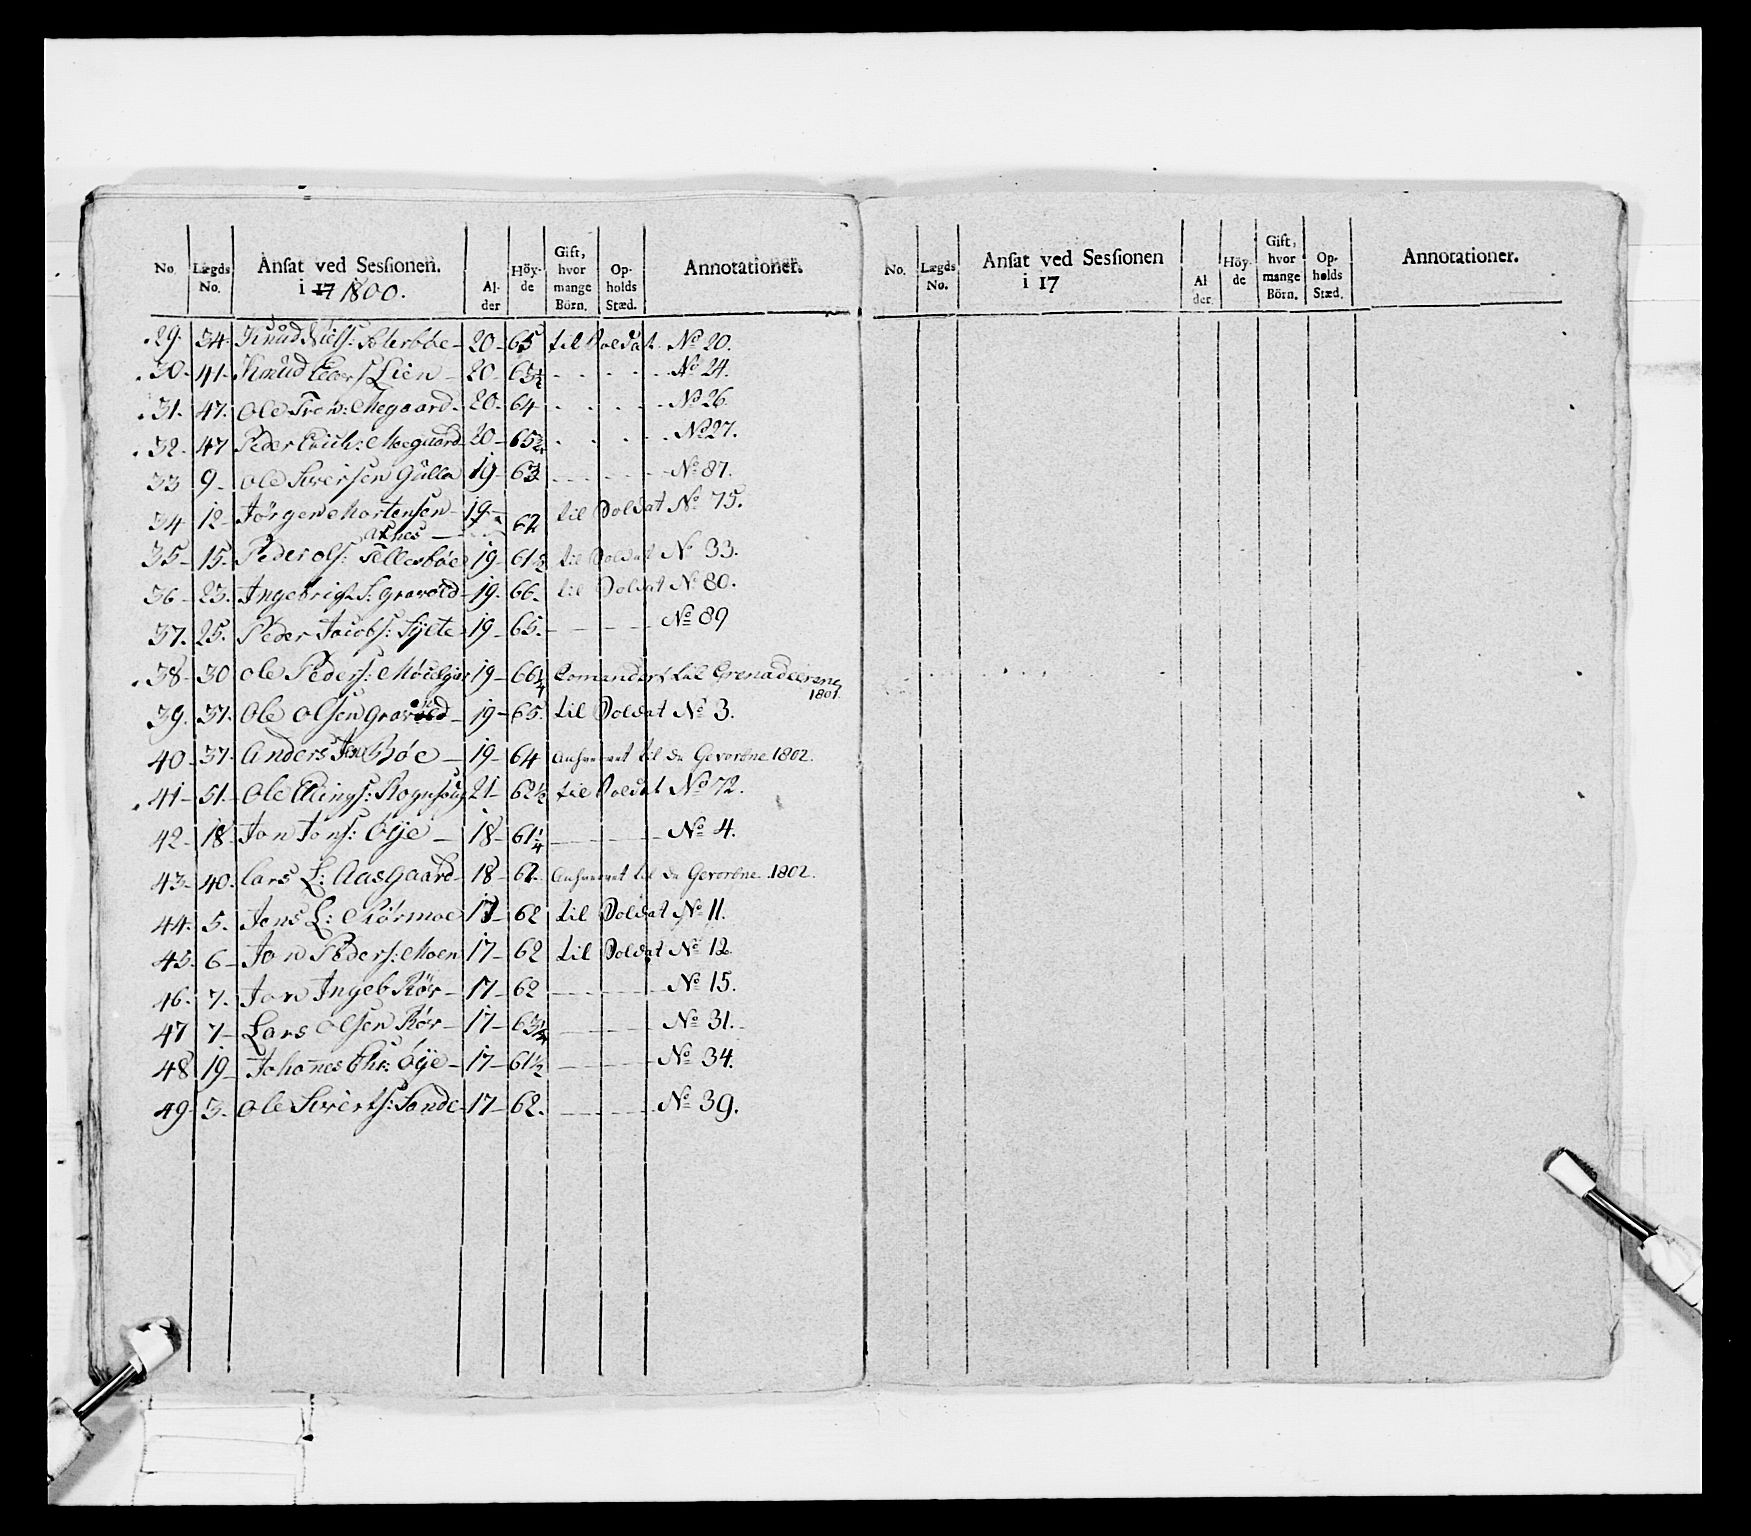 No. Lægds No. Ansat ved Sessionen. i 17 1800. Al- der Höy- de Gift, hvor mange Börn. Op- holds Stæd. Annotationer.
29. 34. Knud Niels: Solerböe 20 65 til Soldat No 20.
30. 41 Knud Lars Lien 20 63½ No 24.
31. 47. Ole Trew: Megaard 20 64 No 26
32. 47 Peder Erich: Moegaard 20 65½ No 27.
33 9 Ole Siversen Gulla 19 63 No 87.
34 12 Jörgen Mortensen 19 62 til Soldat No 75.
Axnes
35 15. Peder Ols: Fellesböe 19 61½ til Soldat No 33.
36 23. Ingebrigt S: Gravold 19 66 til Soldat No 80.
37. 25. Peder Jacobs: Sylte 19 65. No 89
38 30 Ole Peders: 19 66¼ Comanderet til Grenadeerene
1801.
39. 37. Ole Olsen 19 65. til Soldat No 3.
40 37. Anders Jon Böe 19 64 til de Gevorbne 1802.
41 51. Ole Ellings: 21 62½ til Soldat No 72.
42 18 Jon Jons: Öye 18 61¼ No 4.
43. 40. Lars L: Aasgaard 18 62. til de Gevorbne 1802.
44. 5. Jens L: Rörmoe 17 62 til Soldat No 11.
45. 6 Jon Peders: Moen 17 62 til Soldat No 12.
46. 7. Jon Ingeb Rör 17 62 No 15.
47 7 Lars Olsen Rör 17 63¼ No 31.
48 19 Johannes Chr: Öye 17 61½ No 34.
49 3. Ole Siverts: Sande 17 62. No 39.
No. Lægds No. Ansat ved Sessionen i 17 Al der Höy- de Gift, hvor mange Börn. Op- holds Stæd. Annotationer.